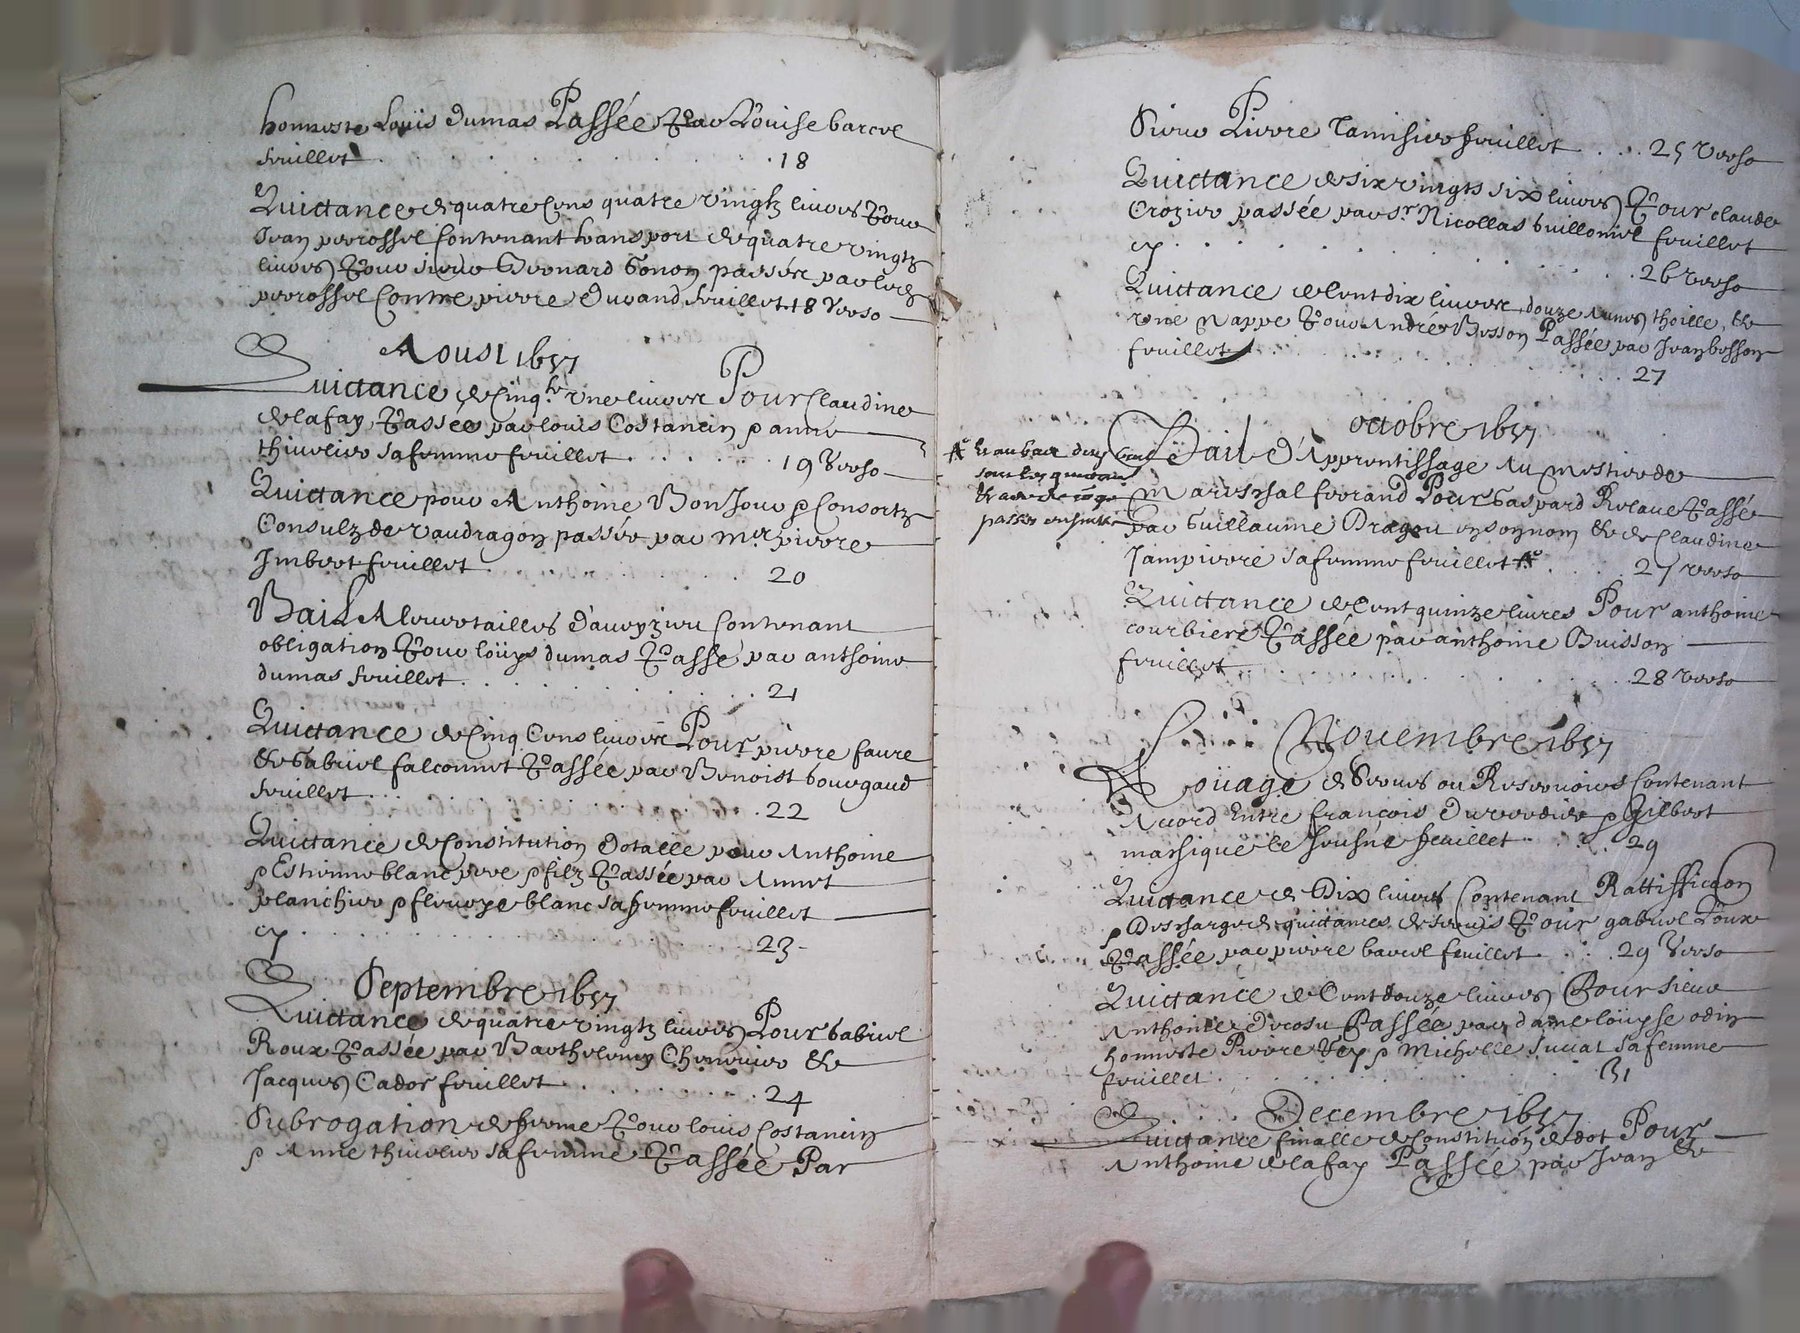 honneste Louis dumas Passée Par Louise barcel
feuillet . . . 18
Quictance de quatre Cens quatre vingtz livres Pour
Jean perrossel Contenant transport de quatre vingtz
livres Pour sieur Bernard Gonon passée par led
perrossel Contre pierre Durand feuillet 18 Verso
Aoust 1657
Quictance de Cinq.te une livres Pour Claudine
delafay Passée par louis Costancin & anne
thivelier sa femme feuillet . . . 19 Verso
Quictance pour Anthoine BonJour & Consortz
Consulz de vaudragon passée par Mer pierre
Imbert feuillet . . . 20
Bail A lever tailles d'aveyzieu Contenant
obligation Pour loüys dumas Passé par anthoine
dumas feuillet . . . 21
Quictance de Cinq Cens livres Pour pierre faure
de Gabriel falconnet Passée par Benoist bourgaud
feuillet . . . 22
Quictance de Constitution dotalle pour Anthoine
& Estienne blanc pere & filz Passée par Annet
planchier & fleurye blanc sa femme feuillet
cy . . . 23
Septembre 1657
Quictance de quatre vingtz livres Pour Gabriel
Roux Passée par Barthelemy Chenevier &
Jacques Cador feuillet . . . 24
Subrogation de ferme Pour louis Costancin
& Anne thivelier sa femme Passée Par
Sieur Pierre Tamisier feuillet . . . 25 Verso
Quictance de six vingts six livres Pour claude
Crozier passée par sr Nicollas Guillomel feuillet
cy . . . 26 Verso
Quictance de Cent dix livres, douze Aunes thoille, &
une Nappe Pour André Besson Passée par Jean besson
feuillet . . . 27
octobre 1657
Bail d'Apprentissage Au mestier de
Mareschal ferrand Pour Gaspard Relave Passé
par Guillaume Dragon en son nom & de Claudine
Jampierre sa femme feuillet . . . 27 verso
Quictance de Cent quinze livres Pour anthoine
courbiere Passée par anthoine Buisson
feuillet . . . 28 verso
Novembre 1657
Loüage de Serves ou Reservoirs Contenant
Accord Entre françois Duverdier & Gilbert
marsique le Jeusne feuillet . . . 29
Quictance de Dix livres Contenant Rattiffica͠on
& Descharge de quictances de servis Pour gabriel Roux
Passée par pierre barcel feuillet . . . 29 Verso
Quictance de Cent douze livres Pour sieur
Anthoine Decosu Passée par dame loüyse odin
honneste Pierre Vey & Michelle Juciat sa femme
feuillet . . . 31
Decembre 1657
Quictance finalle de Constitution de dot Pour
Anthoine delafay Passée par Jean &